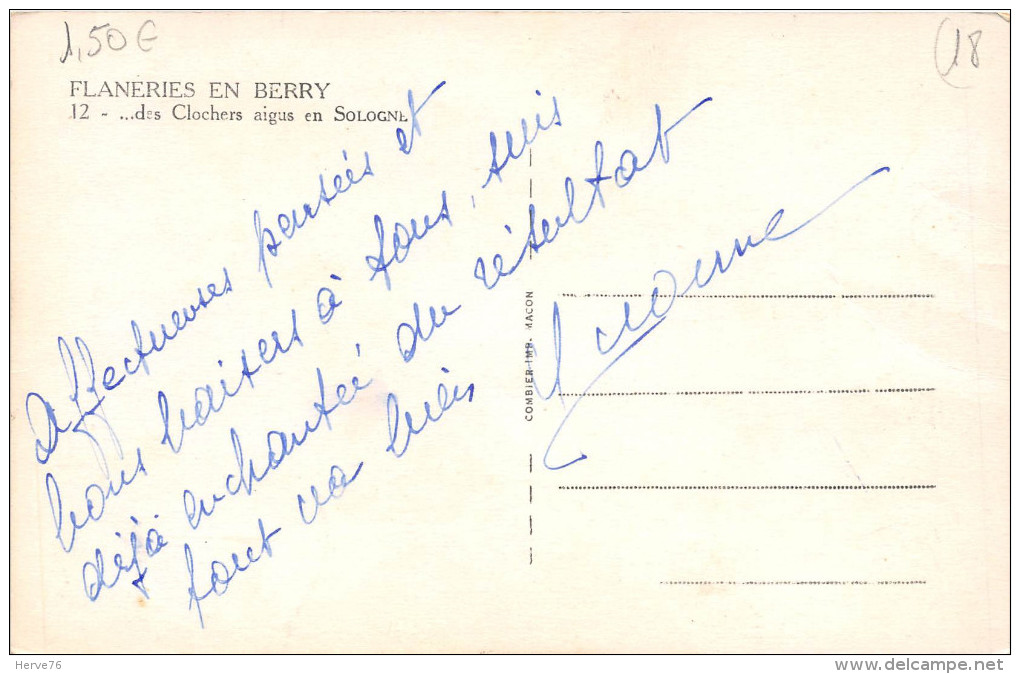 1,50 €
(18
FLANERIES EN BERRY
12 - ...des Clochers aigus en SOLOGNE
Affectueuses pensées et
bons baisers à tous, suis
déjà enchantée du résultat
tout va bien
COMBIER IMP. MACON
Herve76
www.delcampe.net